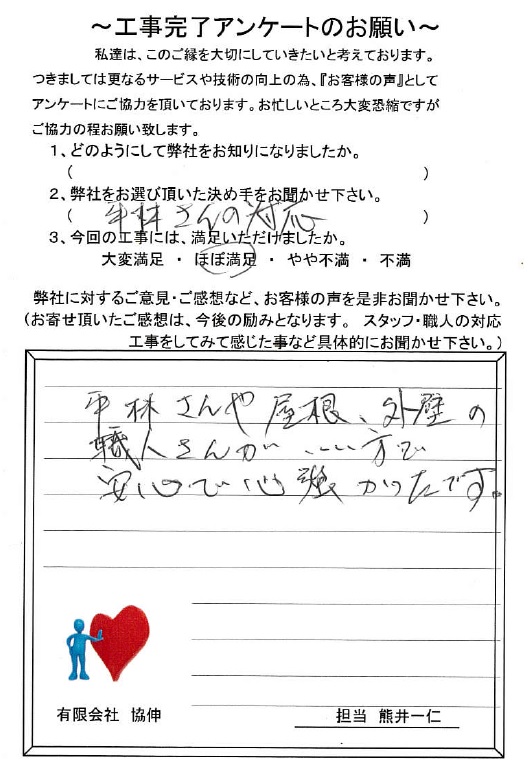 ～工事完了アンケートのお願い～
私達は、このご縁を大切にしていきたいと考えております。
つきましては更なるサービスや技術の向上の為、『お客様の声』として
アンケートにご協力を頂いております。お忙しいところ大変恐縮ですが
ご協力の程お願い致します。
1、どのようにして弊社をお知りになりましたか。
(　　　)
2、弊社をお選び頂いた決め手をお聞かせ下さい。
(平林さんの対応)
3、今回の工事には、満足いただけましたか。
大変満足 ・ ほぼ満足 ・ やや不満 ・ 不満
弊社に対するご意見・ご感想など、お客様の声を是非お聞かせ下さい。
(お寄せ頂いたご感想は、今後の励みとなります。 スタッフ・職人の対応
工事をしてみて感じた事など具体的にお聞かせ下さい。)
平林さんや屋根、外壁の
職人さんがいい方で
安心で心強かったです。
有限会社 協伸
担当 熊井一仁